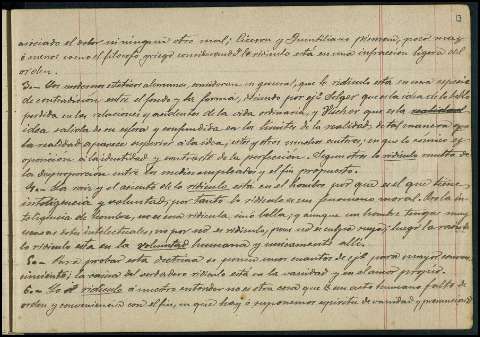 13
asociado el dolor ni ningun otro mal; Ciceron y Quintiliano piensan, poco mas
ó menos como el filósofo griego considerando q.e lo ridículo está en una infraccion ligera del
orden.
3.— Los modernos estéticos alemanes, consideran en general, que lo ridículo está en una especie
de contradiccion entre el fondo y la forma, diciendo por ej.o Solger que es la idea de lo bello
perdida en las relaciones y accidentes de la vida ordinaria, y Vischer que es la realidad
idea salida de su esfera y confundida en los límites de la realidad, de tal manera que
la realidad aparece superior á la idea, estos y otros muchos autores, en que lo cómico es
oposicion á la identidad y contraste de la perfeccion. Segun otros lo ridículo resulta de
la desproporcion entre los medios empleados y el fin propuesto.
4.— La raiz y el asiento de lo ridículo está en el hombre por que es el que tiene
inteligencia y voluntad, por tanto lo ridículo es un fenómeno moral. Por la in-
teligencia el hombre, no es ni ridículo, ni bello; y aunque un hombre tenga muy
escasas dotes intelectuales, no por eso es ridículo, pues no es culpa suya; luego la raiz de
lo ridículo está en la voluntad humana y unicamente allí.
5.— Para probar esta doctrina se ponen unos cuantos de ej.o para mayor conven-
cimiento; la raiz del verdadero ridículo está en la vanidad y en el amor propio.
6.— Lo ridículo á nuestro entender no es otra cosa que un acto humano falto de
orden y conveniencia con el fin, en que hay ó suponemos espíritu de vanidad y presuncion